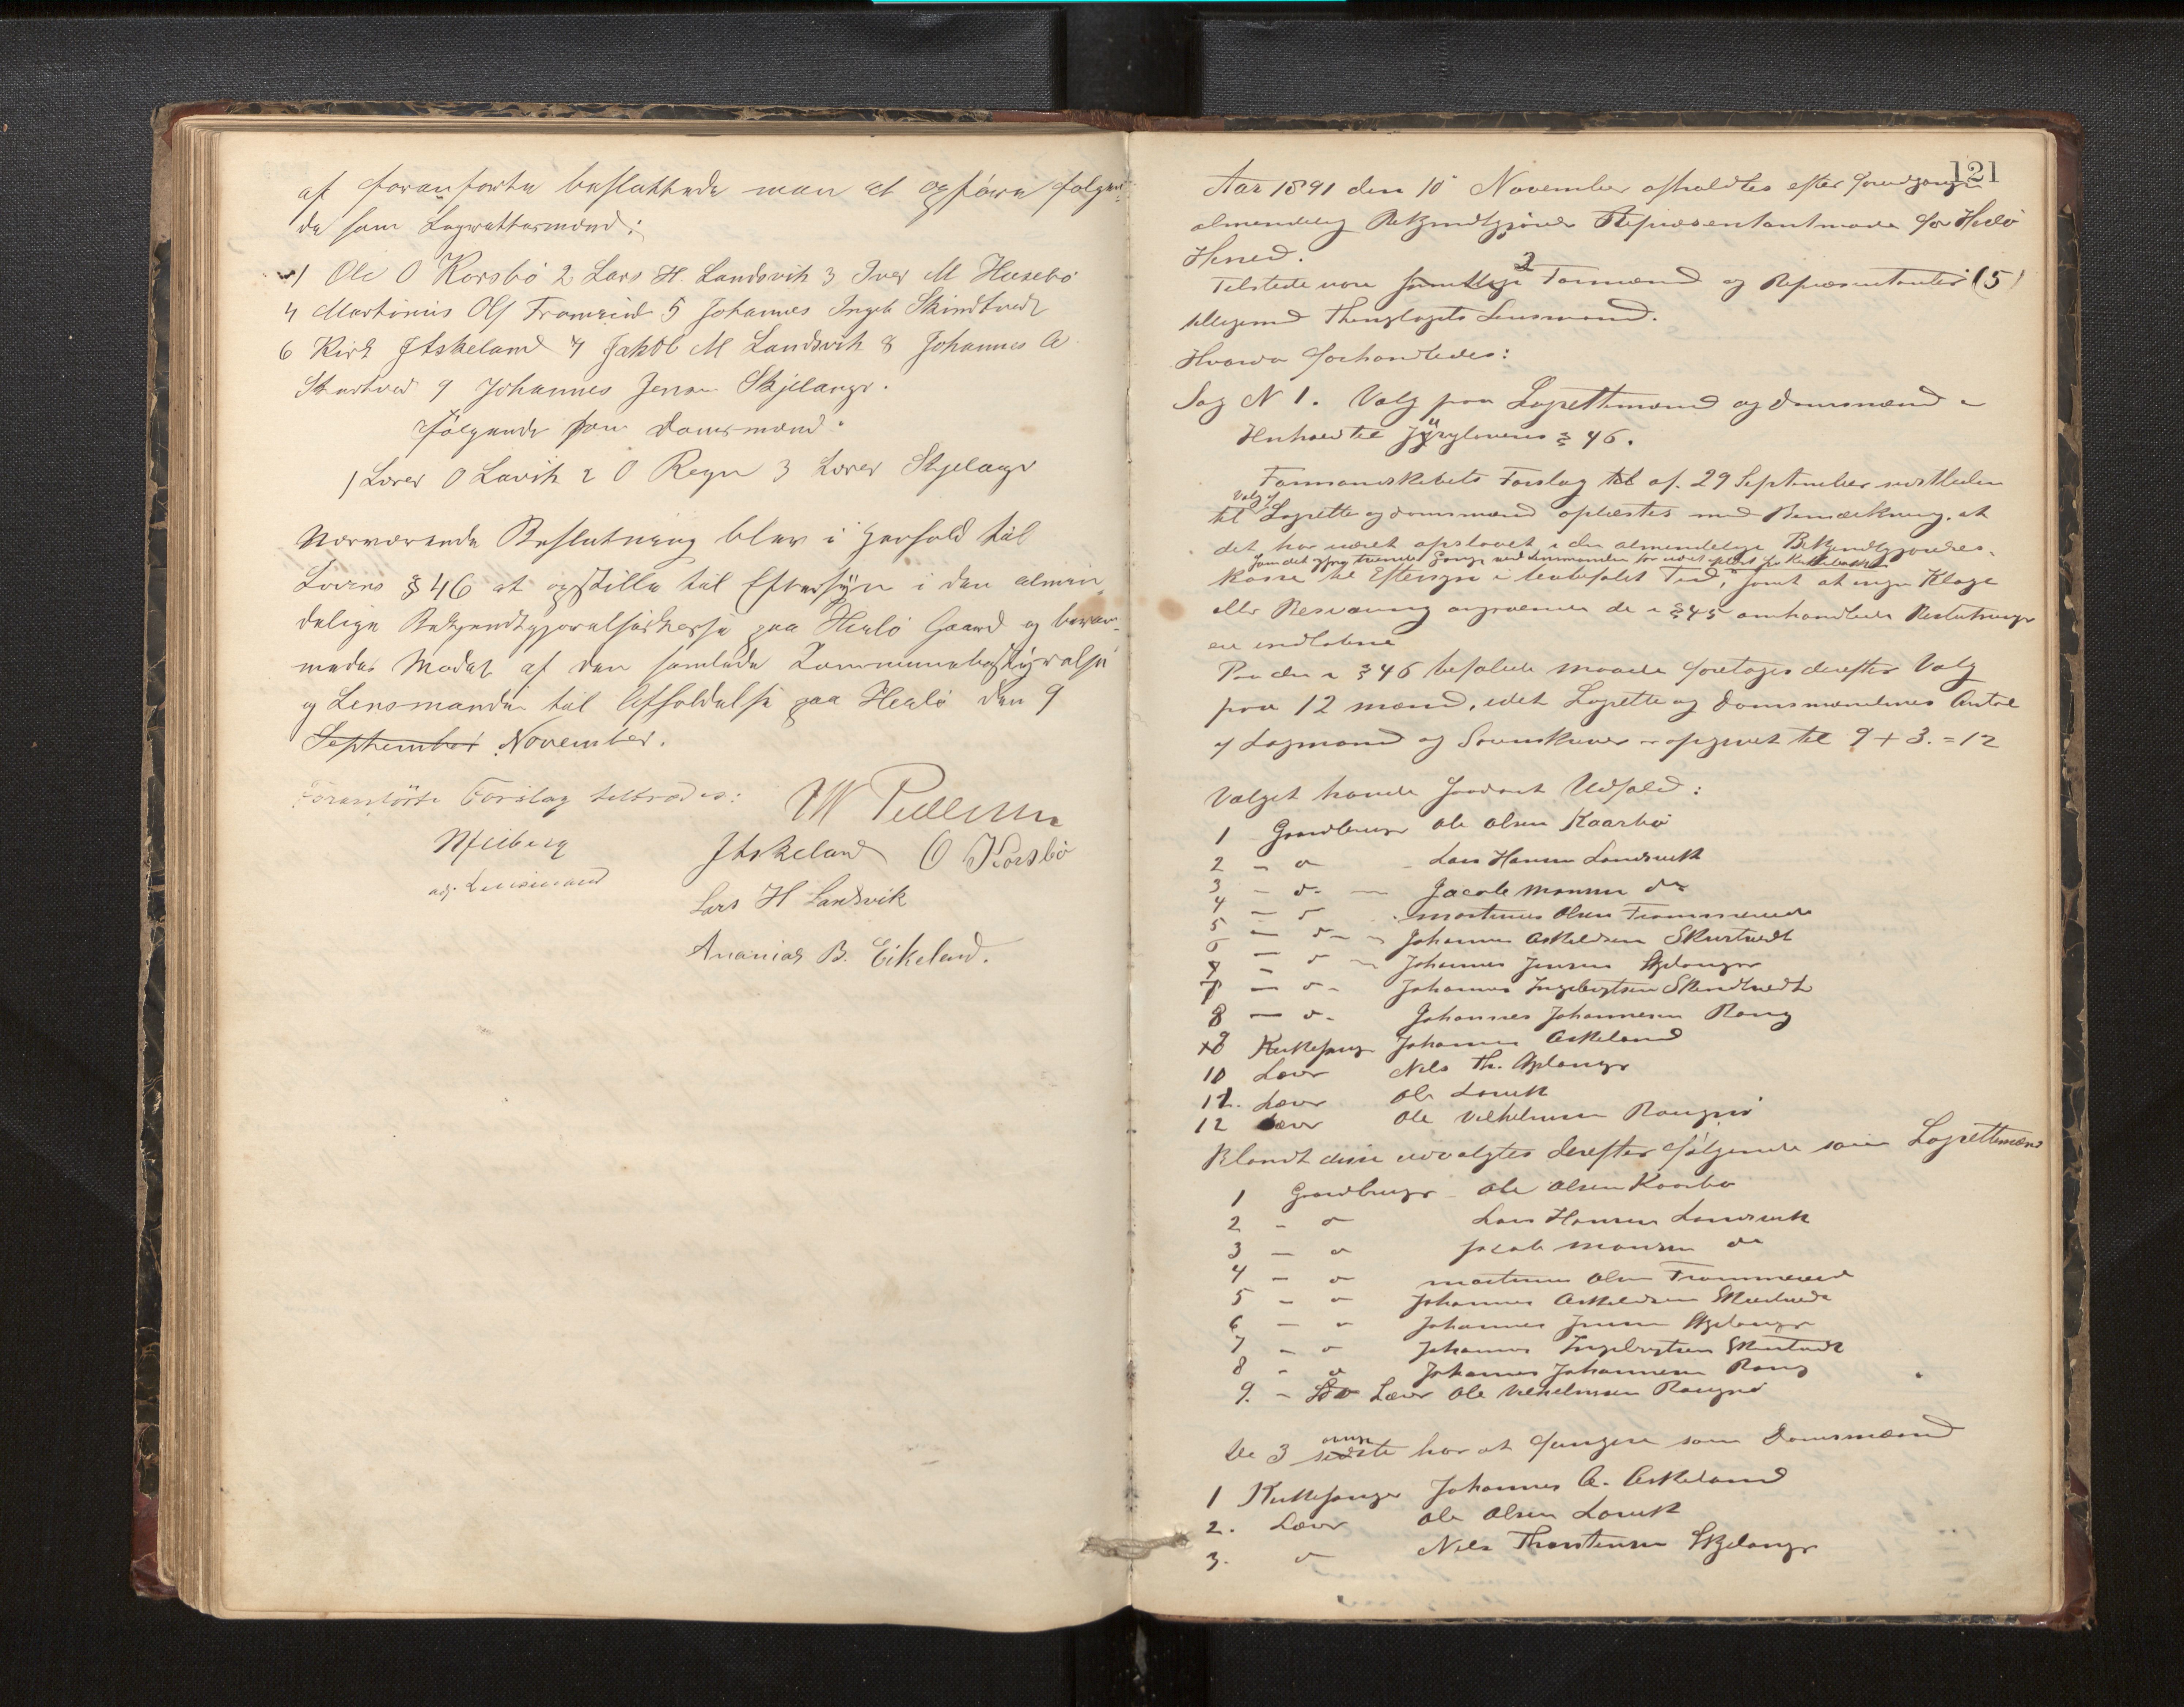 af foranførte besluttede man at opføre følgen-
de som Lagrettesmænd:
1 Ole O Korsbö 2 Lars H. Landsvik 3 Iver M Husebö
4 Martinius Ols Fromreid 5 Johannes Ingeb Skindtvedt
6 Kirks J Askeland 7 Jakob M Landsvik 8 Johannes A
Skurtved 9 Johannes Jensen Skjelanger.
følgende som Domsmænd:
1 Lærer O Lavik 2 O Regn 3 Lærer Skjelanger
Nærværende Beslutning blev i Henhold til
Lovens § 46 at opstille til Eftersyn i den almin-
delige Bekjendtgjørelseskasse paa Herlø Gaard og beram-
medes Mødet af den samlede Kommunebestyrelse
og Lensmanden til Afholdelse paa Herlø den 9
September November.
Foranførte Forslag tiltrædes:
M Pedersen
Meiberg
adj. Lensmand
J Askeland O Korsbö
Lars H Landsvik
Ananias B. Eikeland.
121
Aar 1891 den 10 November afholdtes efter foregaaende
almindelig Bekjendtgjørelse Repræsentantmøde for Herlø
Herred.
Tilstede vare samtlige 2 Formænd og Repræsentanter (5)
tilligemed Thinglagets Lensmand.
Hvorda forhandledes:
Sag N 1. Valg paa Lagrettemænd og Domsmænd i
Henhold til Jurylovens § 46.
Formandskabets Forslag til af 29 September sidstleden
Valg af
til Lagrette og Domsmænd oplæstes med Bemærkning, at
det har været opslaaet i den almindelige Bekjendtgjørelses-
kasse til Eftersyn i lovbefalet Tid, samt at ingen Klage
eller Besværing angaaende de i § 45 omhandlede Beslutninger
ere indløbne
Paa den i § 46 befalede Maade foretoges derefter Valg
paa 12 Mænd, idet Lagrette og Domsmændenes Antal
af Lagmand og Sorenskriver er opgivet til 9 + 3. = 12
Valget havde saadant Udfald:
1 Gaardbruger Ole Olsen Kaarbø
2 - " - Lars Hansen Landsvik
3 - " - Jacob Monsen do
4 - " - Martinus Olsen Frommereide
5 - " - Johannes Askeldsen Skurtvedt
6 - " - Johannes Jensen Skjelanger
7 - " - Johannes Ingebrigtsen Skindtvedt
8 - " - Johannes Johannesen Rong
9 Kirkesanger Johannes Askeland
10 Lærer Nils Th. Skjelanger
11. Lærer Ole Lavik
12 Lærer Ole Vilhelmsen Rongnø
Blandt disse udvalgtes derefter følgende som Lagrettemænd
1 Gaardbruger Ole Olsen Kaarbø
2 - " Lars Hansen Landsvik
3 - " Jacob Monsen do
4 - " Martinus Olsen Frommereid
5 - " Johannes Askeldsen Skurtvedt
6 - " Johannes Jensen Skjelanger
7 - " Johannes Ingebrigtsen Skintvedt
8 - " Johannes Johannesen Rong
9. - Do Lærer Ole Vilhelmsen Rongnø
De 3 sidste har at fungere som Domsmænd
1 Kirkesanger Johannes A. Askeland
2. Lærer Ole Olsen Lavik
3. " Nils Thorstensen Skjelanger